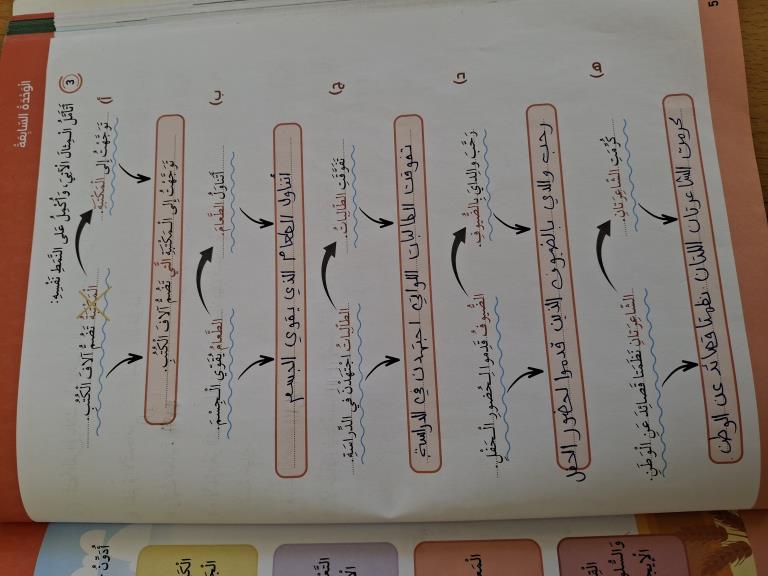 الْوَحْدَةُ السَّابِعَةُ
3 أَتَأَمَّلُ الْمِثَالَ الْآتِيَ، وَأُكْمِلُ عَلَى النَّمَطِ نَفْسِهِ:
أ) تَوَجَّهْتُ إِلَى الْمَكْتَبَةِ. الْمَكْتَبَةُ تَضُمُّ آلَافَ الْكُتُبِ.
تَوَجَّهْتُ إِلَى الْمَكْتَبَةِ الَّتِي تَضُمُّ آلَافَ الْكُتُبِ.
ب) أَتَنَاوَلُ الطَّعَامَ. الطَّعَامُ يُقَوِّي الْجِسْمَ.
أتناول الطعام الذي يقوي الجسم
ج) تَفَوَّقَتِ الطَّالِبَاتُ. الطَّالِبَاتُ اجْتَهَدْنَ فِي الدِّرَاسَةِ.
تفوقت الطالبات اللواتي اجتهدن في الدراسة
د) رَحَّبَ وَالِدِي بِالضُّيُوفِ. الضُّيُوفُ قَدِمُوا لِحُضُورِ الْحَفْلِ.
رحب والدي بالضيوف الذين قدموا لحضور الحفل
هـ) كُرِّمَتِ الشَّاعِرَتَانِ. الشَّاعِرَتَانِ نَظَمَتَا قَصَائِدَ عَنِ الْوَطَنِ.
كرمت الشاعرتان اللتان نظمتا قصائد عن الوطن
5
أُدَوِّنُ